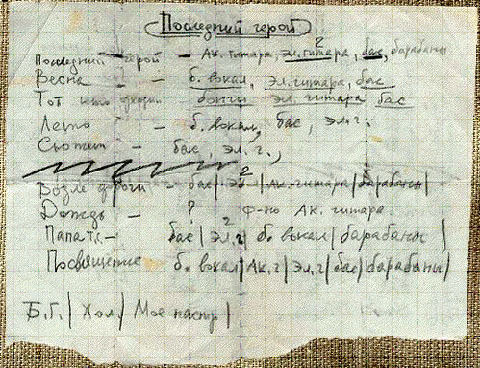 Последний герой
Последний герой – Ак. гитара, эл. гитара 2, бас, барабаны
Весна – б. вокал, эл. гитара, бас
Тот – эл. гитара бас
Лето – б. вокал, бас, эл. г.
Сюжет – бас, эл. г.,
Возле – бас | эл 2 | Ак. гитара | барабаны |
Дождь – ? Ф-но Ак. гитара
Папа т.с – бас | эл. г 2 | б. вокал | барабаны |
Посвящение б. вокал | Ак. г | Эл. г | бас | барабаны |
Б. Г. | Хол. | Мое настр |